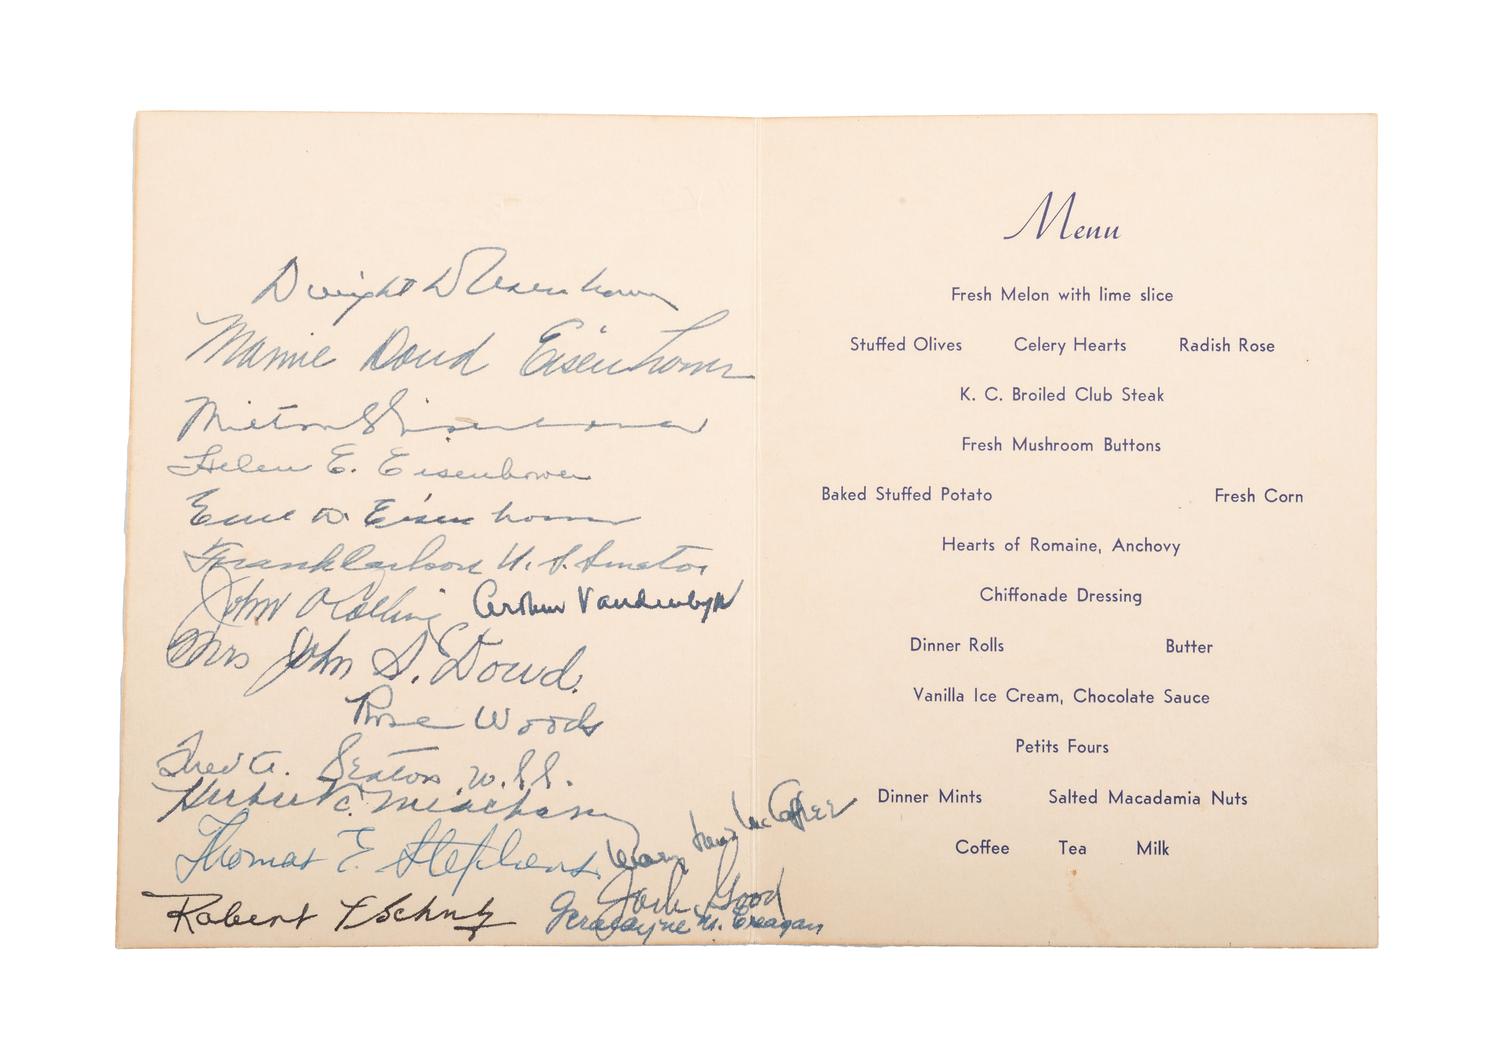 Dwight D Eisenhower
Mamie Doud Eisenhower
Milton S Eisenhower
Helen E. Eisenhower
Earl D. Eisenhower
Frank Carlson U. S. Senator
John Arthur Vandenberg Jr
Mrs John S. Doud.
Rose Woods
Fred A. Seaton U.S.S.
Thomas E. Stephens
Mary Jane McCaffree
Robert Schulz
Jack Good
M.
Menu
Fresh Melon with lime slice
Stuffed Olives Celery Hearts Radish Rose
K. C. Broiled Club Steak
Fresh Mushroom Buttons
Baked Stuffed Potato Fresh Corn
Hearts of Romaine, Anchovy
Chiffonade Dressing
Dinner Rolls Butter
Vanilla Ice Cream, Chocolate Sauce
Petits Fours
Dinner Mints Salted Macadamia Nuts
Coffee Tea Milk